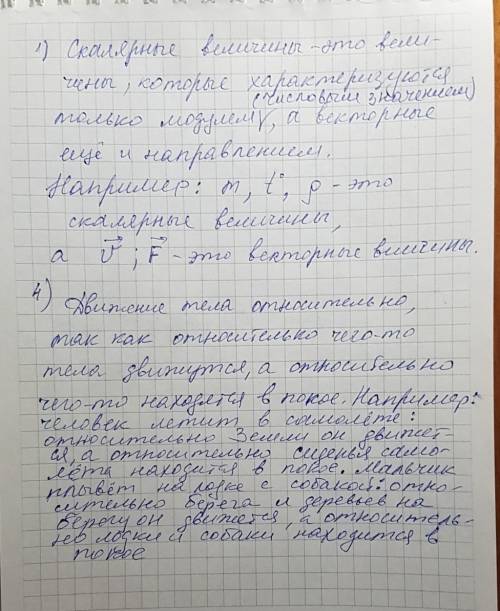 1) Скалярные величины - это вели-
чины, которые характеризуются
(числовым значением)
только модулем, а векторные
ещё и направлением.
Например: m, t°, ρ - это
скалярные величины,
а v⃗; F⃗ - это векторные величины.
4) Движение тела относительно,
так как относительно чего-то
тела движутся, а относительно
чего-то находятся в покое. Например:
человек летит в самолёте:
относительно Земли он движет-
ся, а относительно сиденья само-
лёта находится в покое. Мальчик
плывёт на лодке с собакой: отно-
сительно берега и деревьев на
берегу он движется, а относитель-
но лодки и собаки находится в
покое